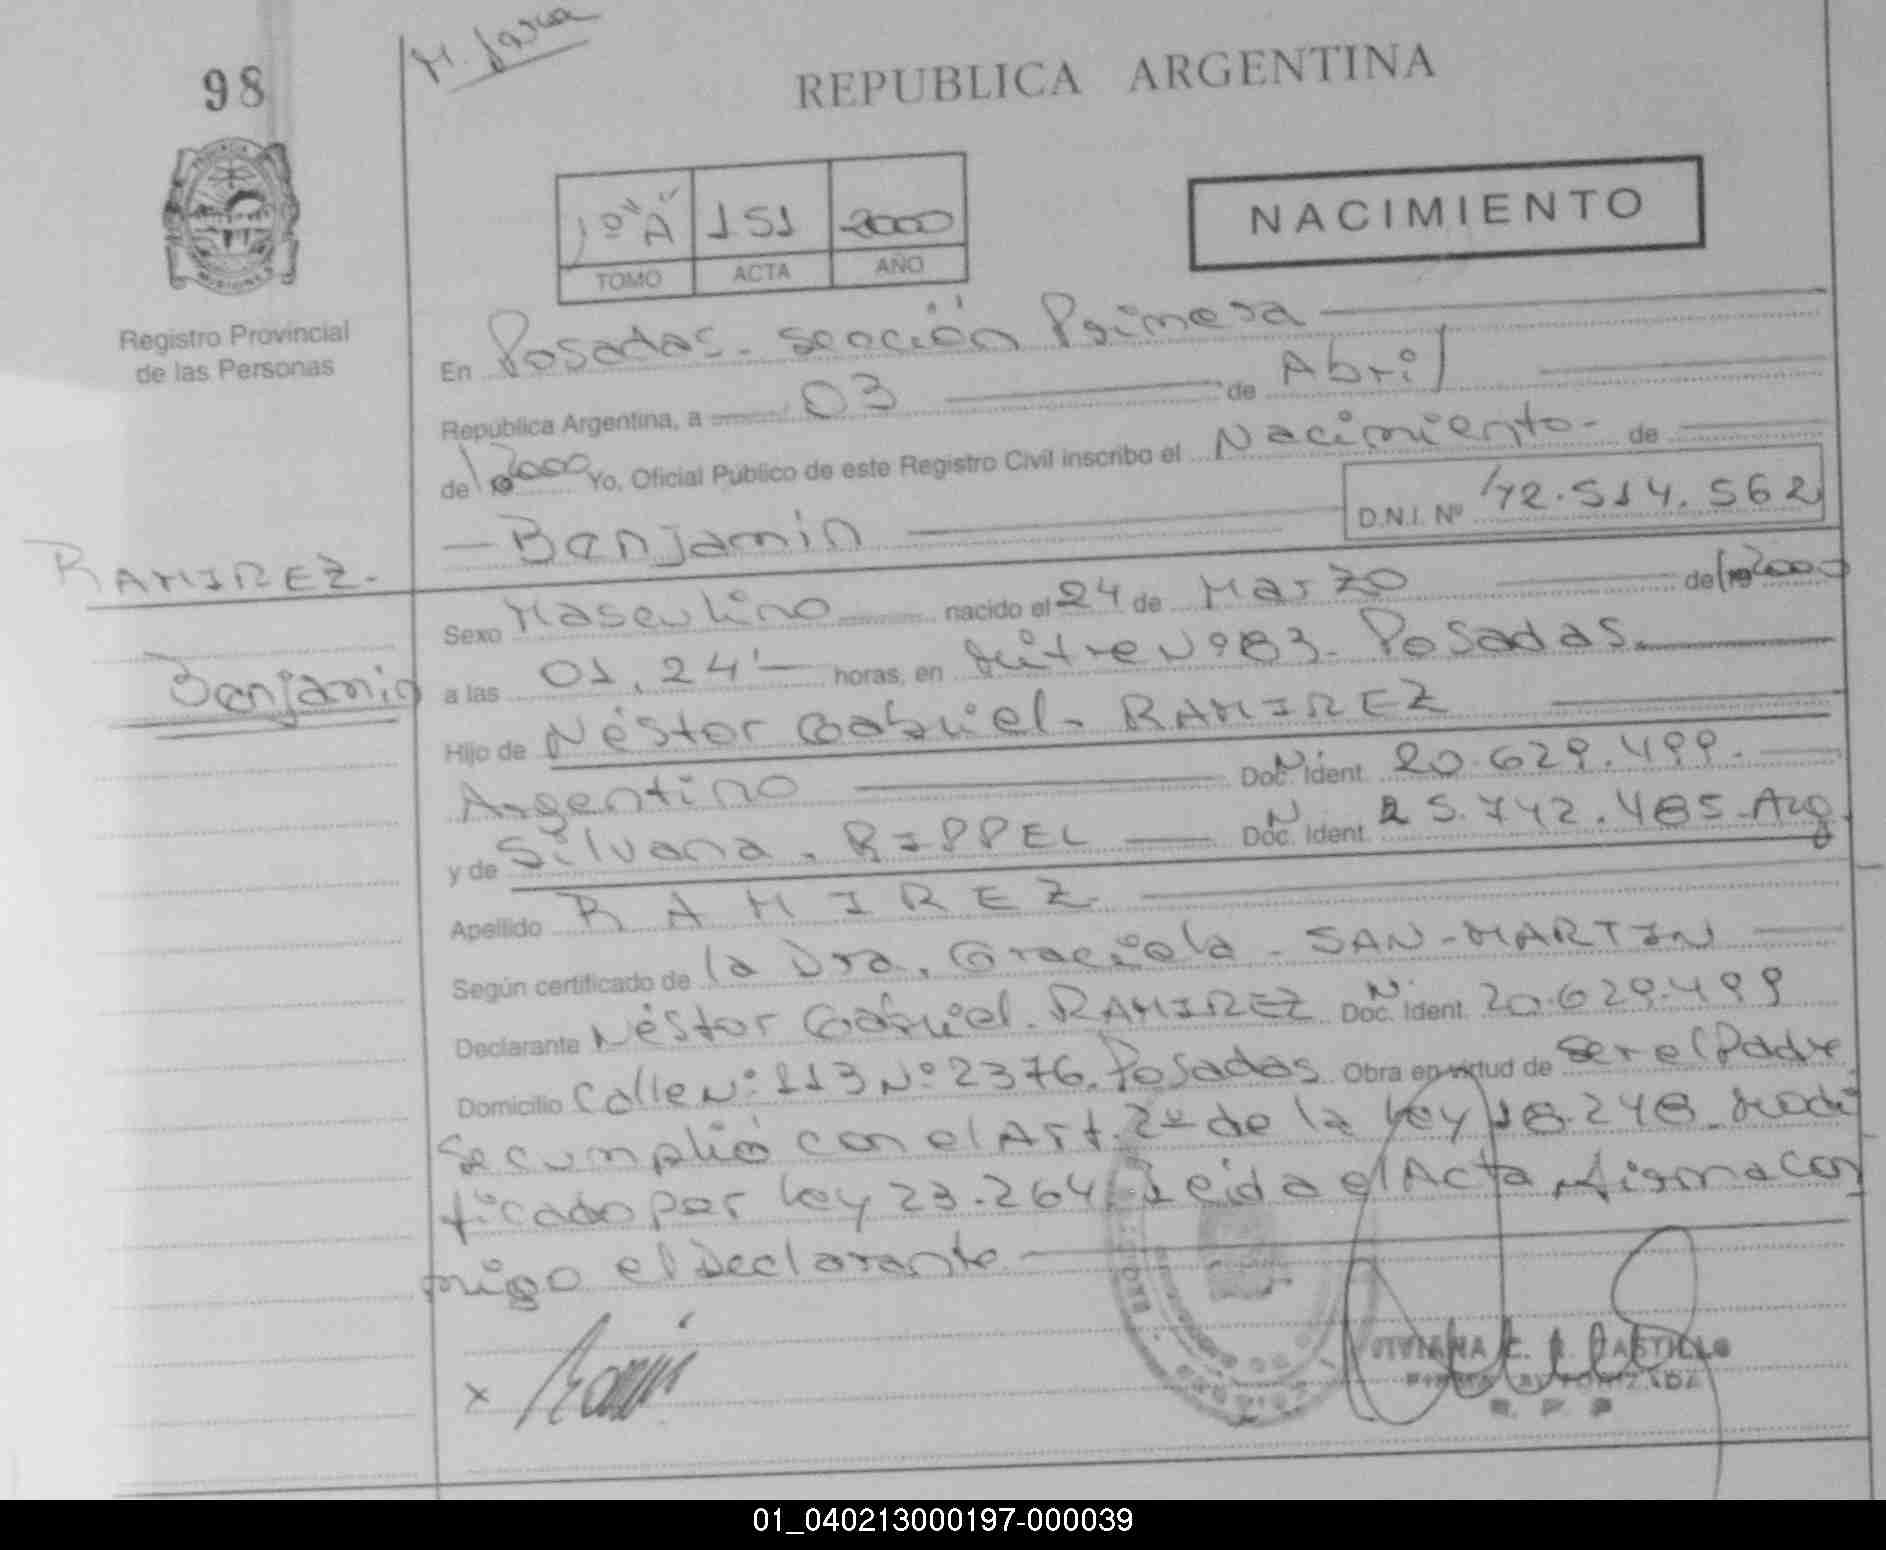 98
M. Juana
REPUBLICA ARGENTINA
PROVINCIA
MISIONES
1º "A" 151 2000
TOMO ACTA AÑO
NACIMIENTO
Registro Provincial
de las Personas
En Posadas. sección Primera
República Argentina, a 03 de Abril
de 2000 Yo, Oficial Público de este Registro Civil inscribo el Nacimiento - de
D.N.I. Nº 42.514.562
Benjamin
RAMIREZ.
Benjamin
Sexo Masculino nacido el 24 de Marzo de 2000
a las 01,24' horas, en Mitre Nº 83. Posadas.
Hijo de Néstor Gabriel. RAMIREZ
Argentino Doc. Ident N. 20.629.499.
y de Silvana. RIPPEL Doc. Ident N. 25.742.485. Arg
Apellido RAMIREZ
Según certificado de la Dra. Graciela - SAN-MARTIN
Declarante Néstor Gabriel. RAMIREZ Doc. Ident. N. 20.629.499
Domicilio Calle Nº: 113 Nº 2376. Posadas Obra en virtud de ser el Padre
Se cumplió con el Art. 2º de la Ley 18.248. Modi
ficado por Ley 23.264. Leida el Acta, firma con
migo el Declarante
x
VIVIANA E. CASTILLO
FIRMA AUTORIZADA
R. P. P
01_040213000197-000039